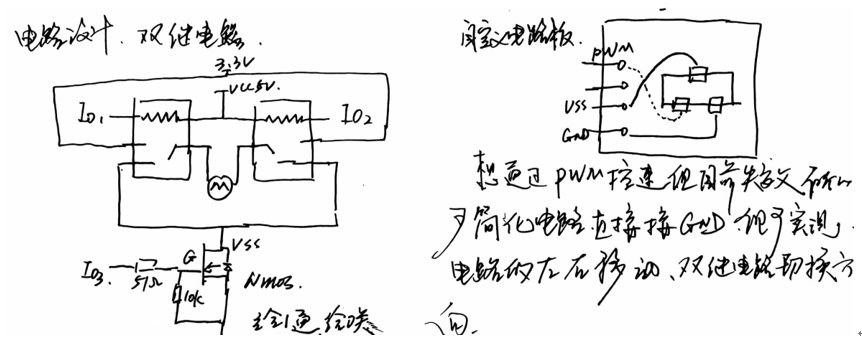 电路设计. 双继电器.
3.3V
VCC5V.
IO1
IO2
VSS
G
IO3
57Ω
10k
Nmos.
给1通,给0关
自定义电路板.
PWM
VSS
GND
想通过PWM控速但目前失效 所以
简化电路直接接GND.但可实现,
电路的左右移动、双继电路切换方
向.